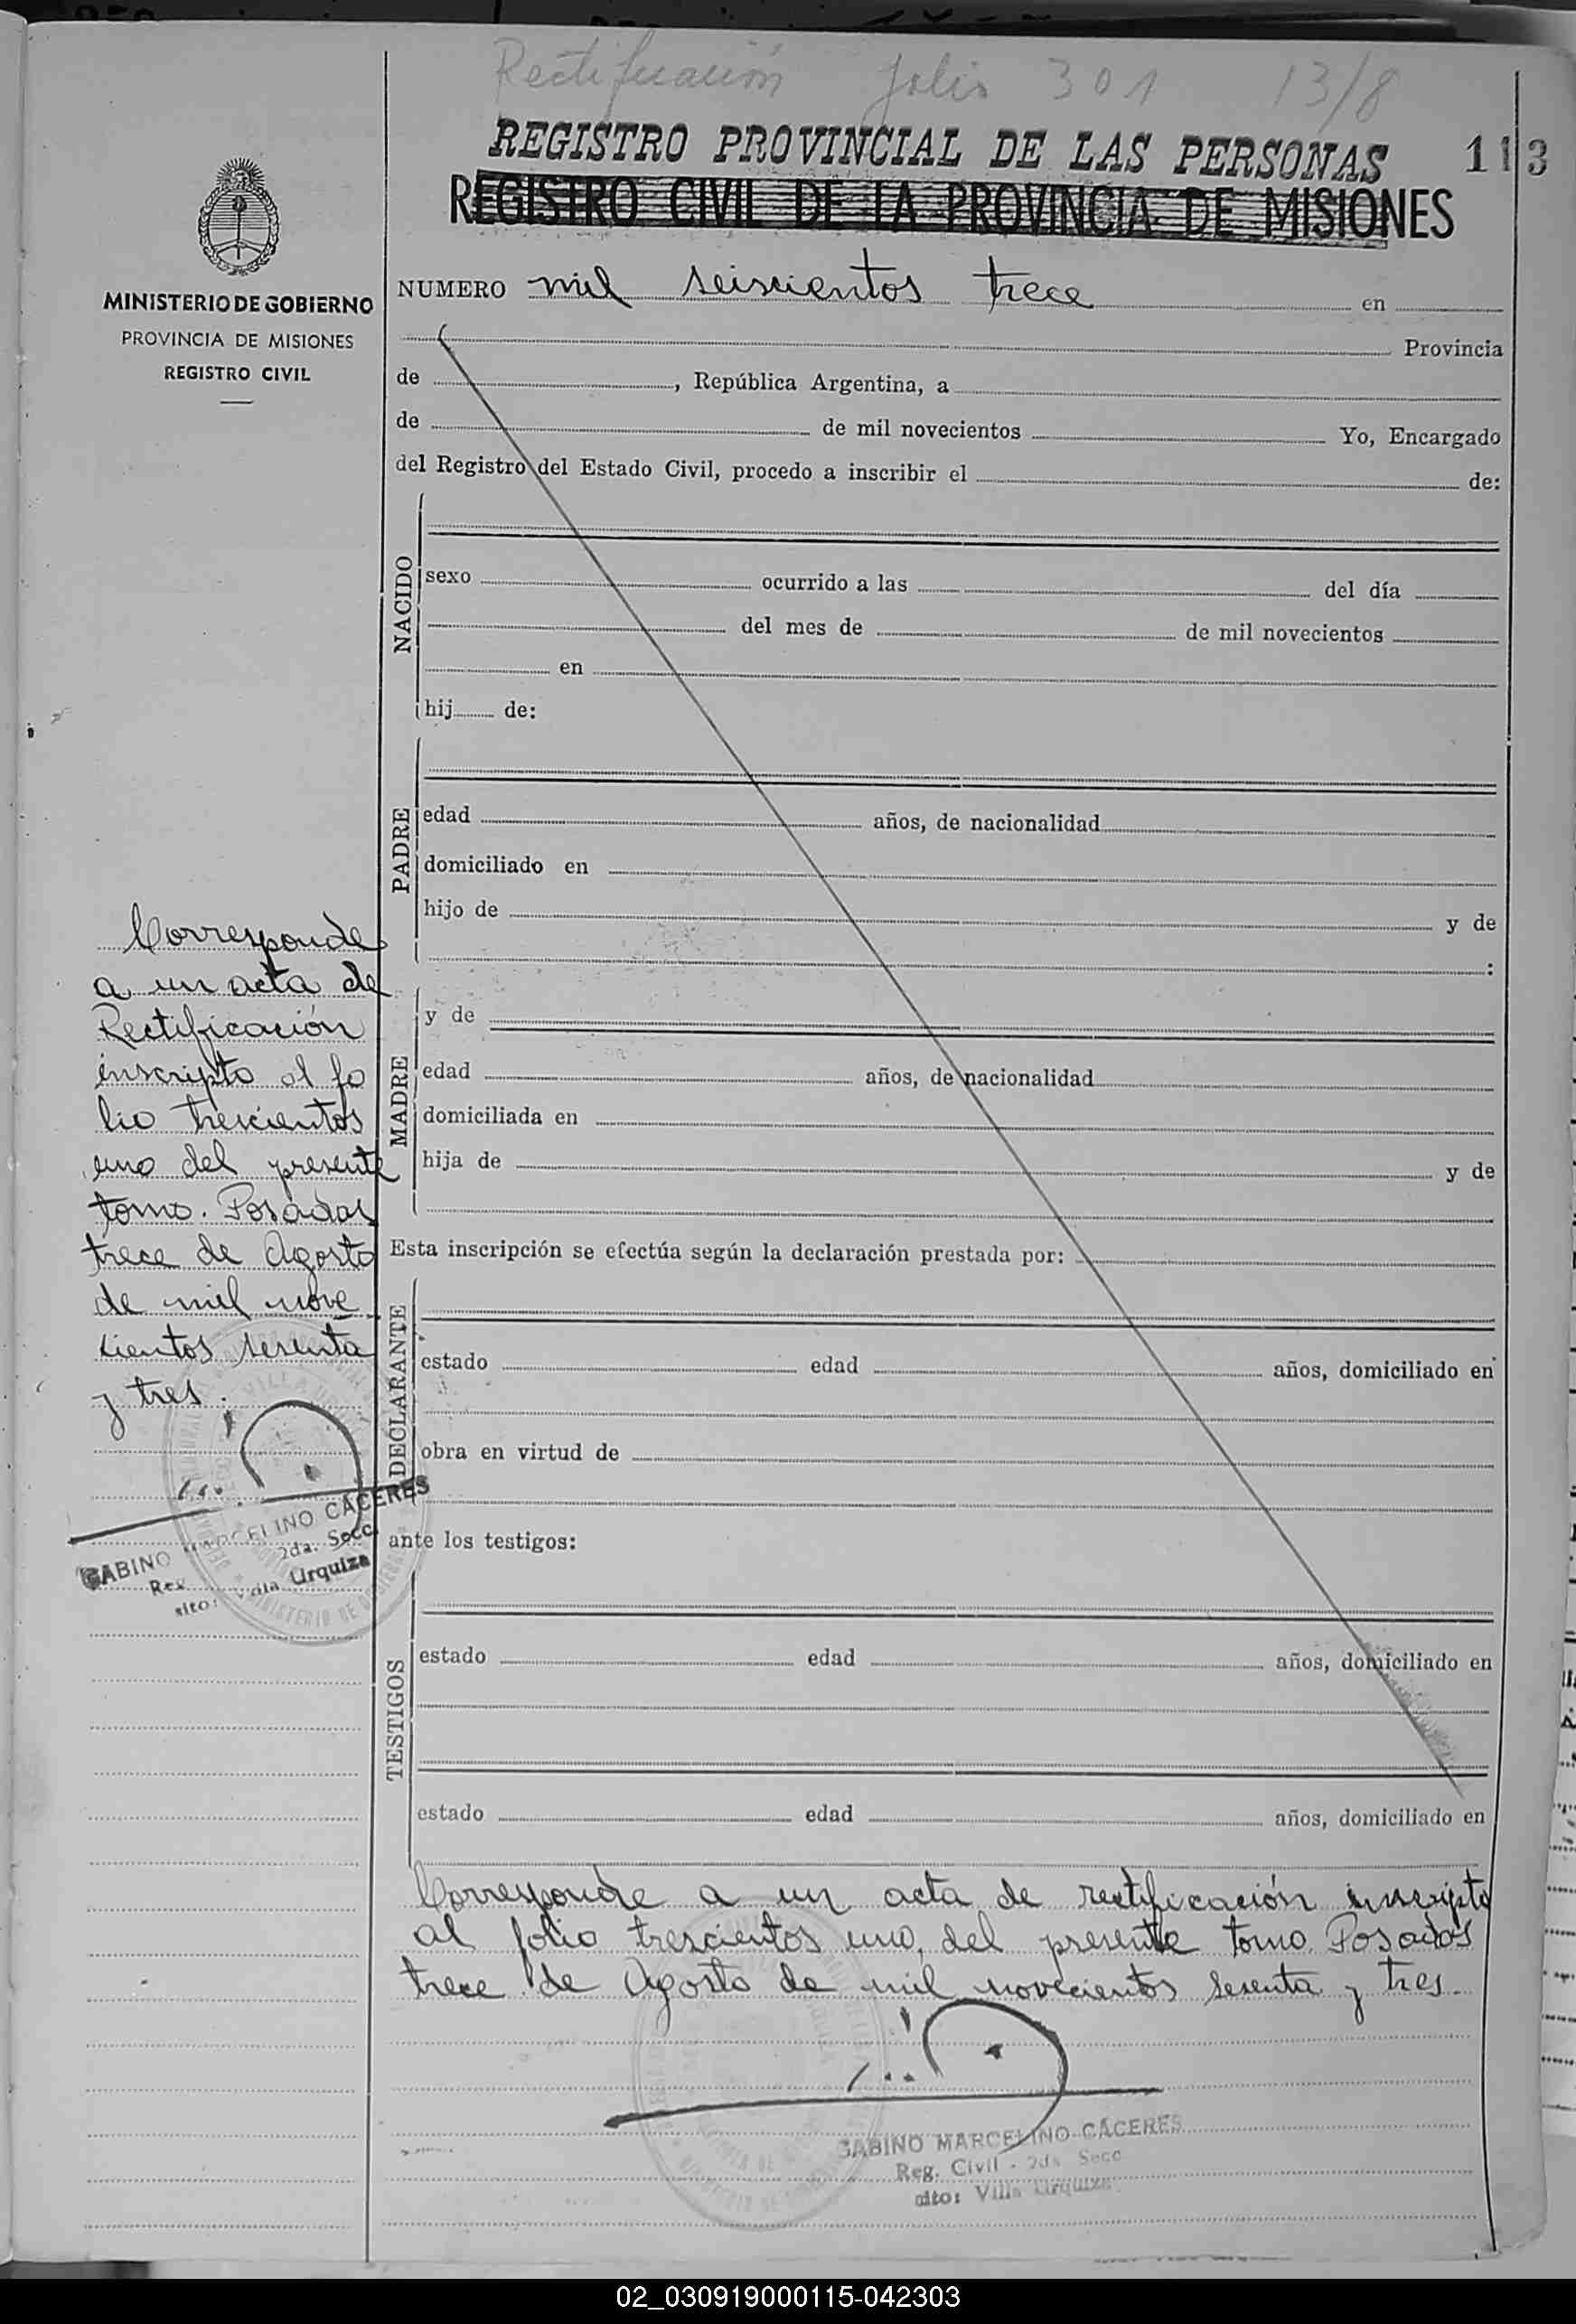 Rectificación folio 301 13/8
REGISTRO PROVINCIAL DE LAS PERSONAS 113
REGISTRO CIVIL DE LA PROVINCIA DE MISIONES
MINISTERIO DE GOBIERNO
PROVINCIA DE MISIONES
REGISTRO CIVIL
NUMERO mil seiscientos trece en
Provincia
de , República Argentina, a
de de mil novecientos Yo, Encargado
del Registro del Estado Civil, procedo a inscribir el de:
NACIDO
sexo ocurrido a las del día
del mes de de mil novecientos
en
hij de:
PADRE
edad años, de nacionalidad
domiciliado en
hijo de y de
:
MADRE
y de
edad años, de nacionalidad
domiciliada en
hija de y de
Esta inscripción se efectúa según la declaración prestada por:
DECLARANTE
estado edad años, domiciliado en
obra en virtud de
ante los testigos:
TESTIGOS
estado edad años, domiciliado en
estado edad años, domiciliado en
Corresponde a un acta de rectificación inscripto
al folio trescientos uno, del presente tomo. Posadas
trece de Agosto de mil novecientos sesenta y tres.
GABINO MARCELINO CACERES
Reg. Civil - 2da Secc
sito: Villa Urquiza
Corresponde
a un acta de
Rectificación
inscripto al fo
lio trescientos
uno del presente
tomo. Posadas
trece de Agosto
de mil nove
cientos sesenta
y tres.
GABINO MARCELINO CACERES
Reg. 2da. Secc.
sito: Villa Urquiza
02_030919000115-042303